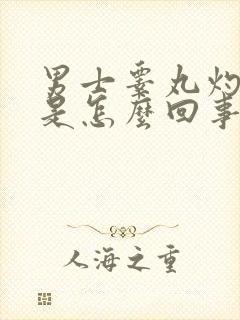 男士睾丸灼
是怎麼回事
人海之重